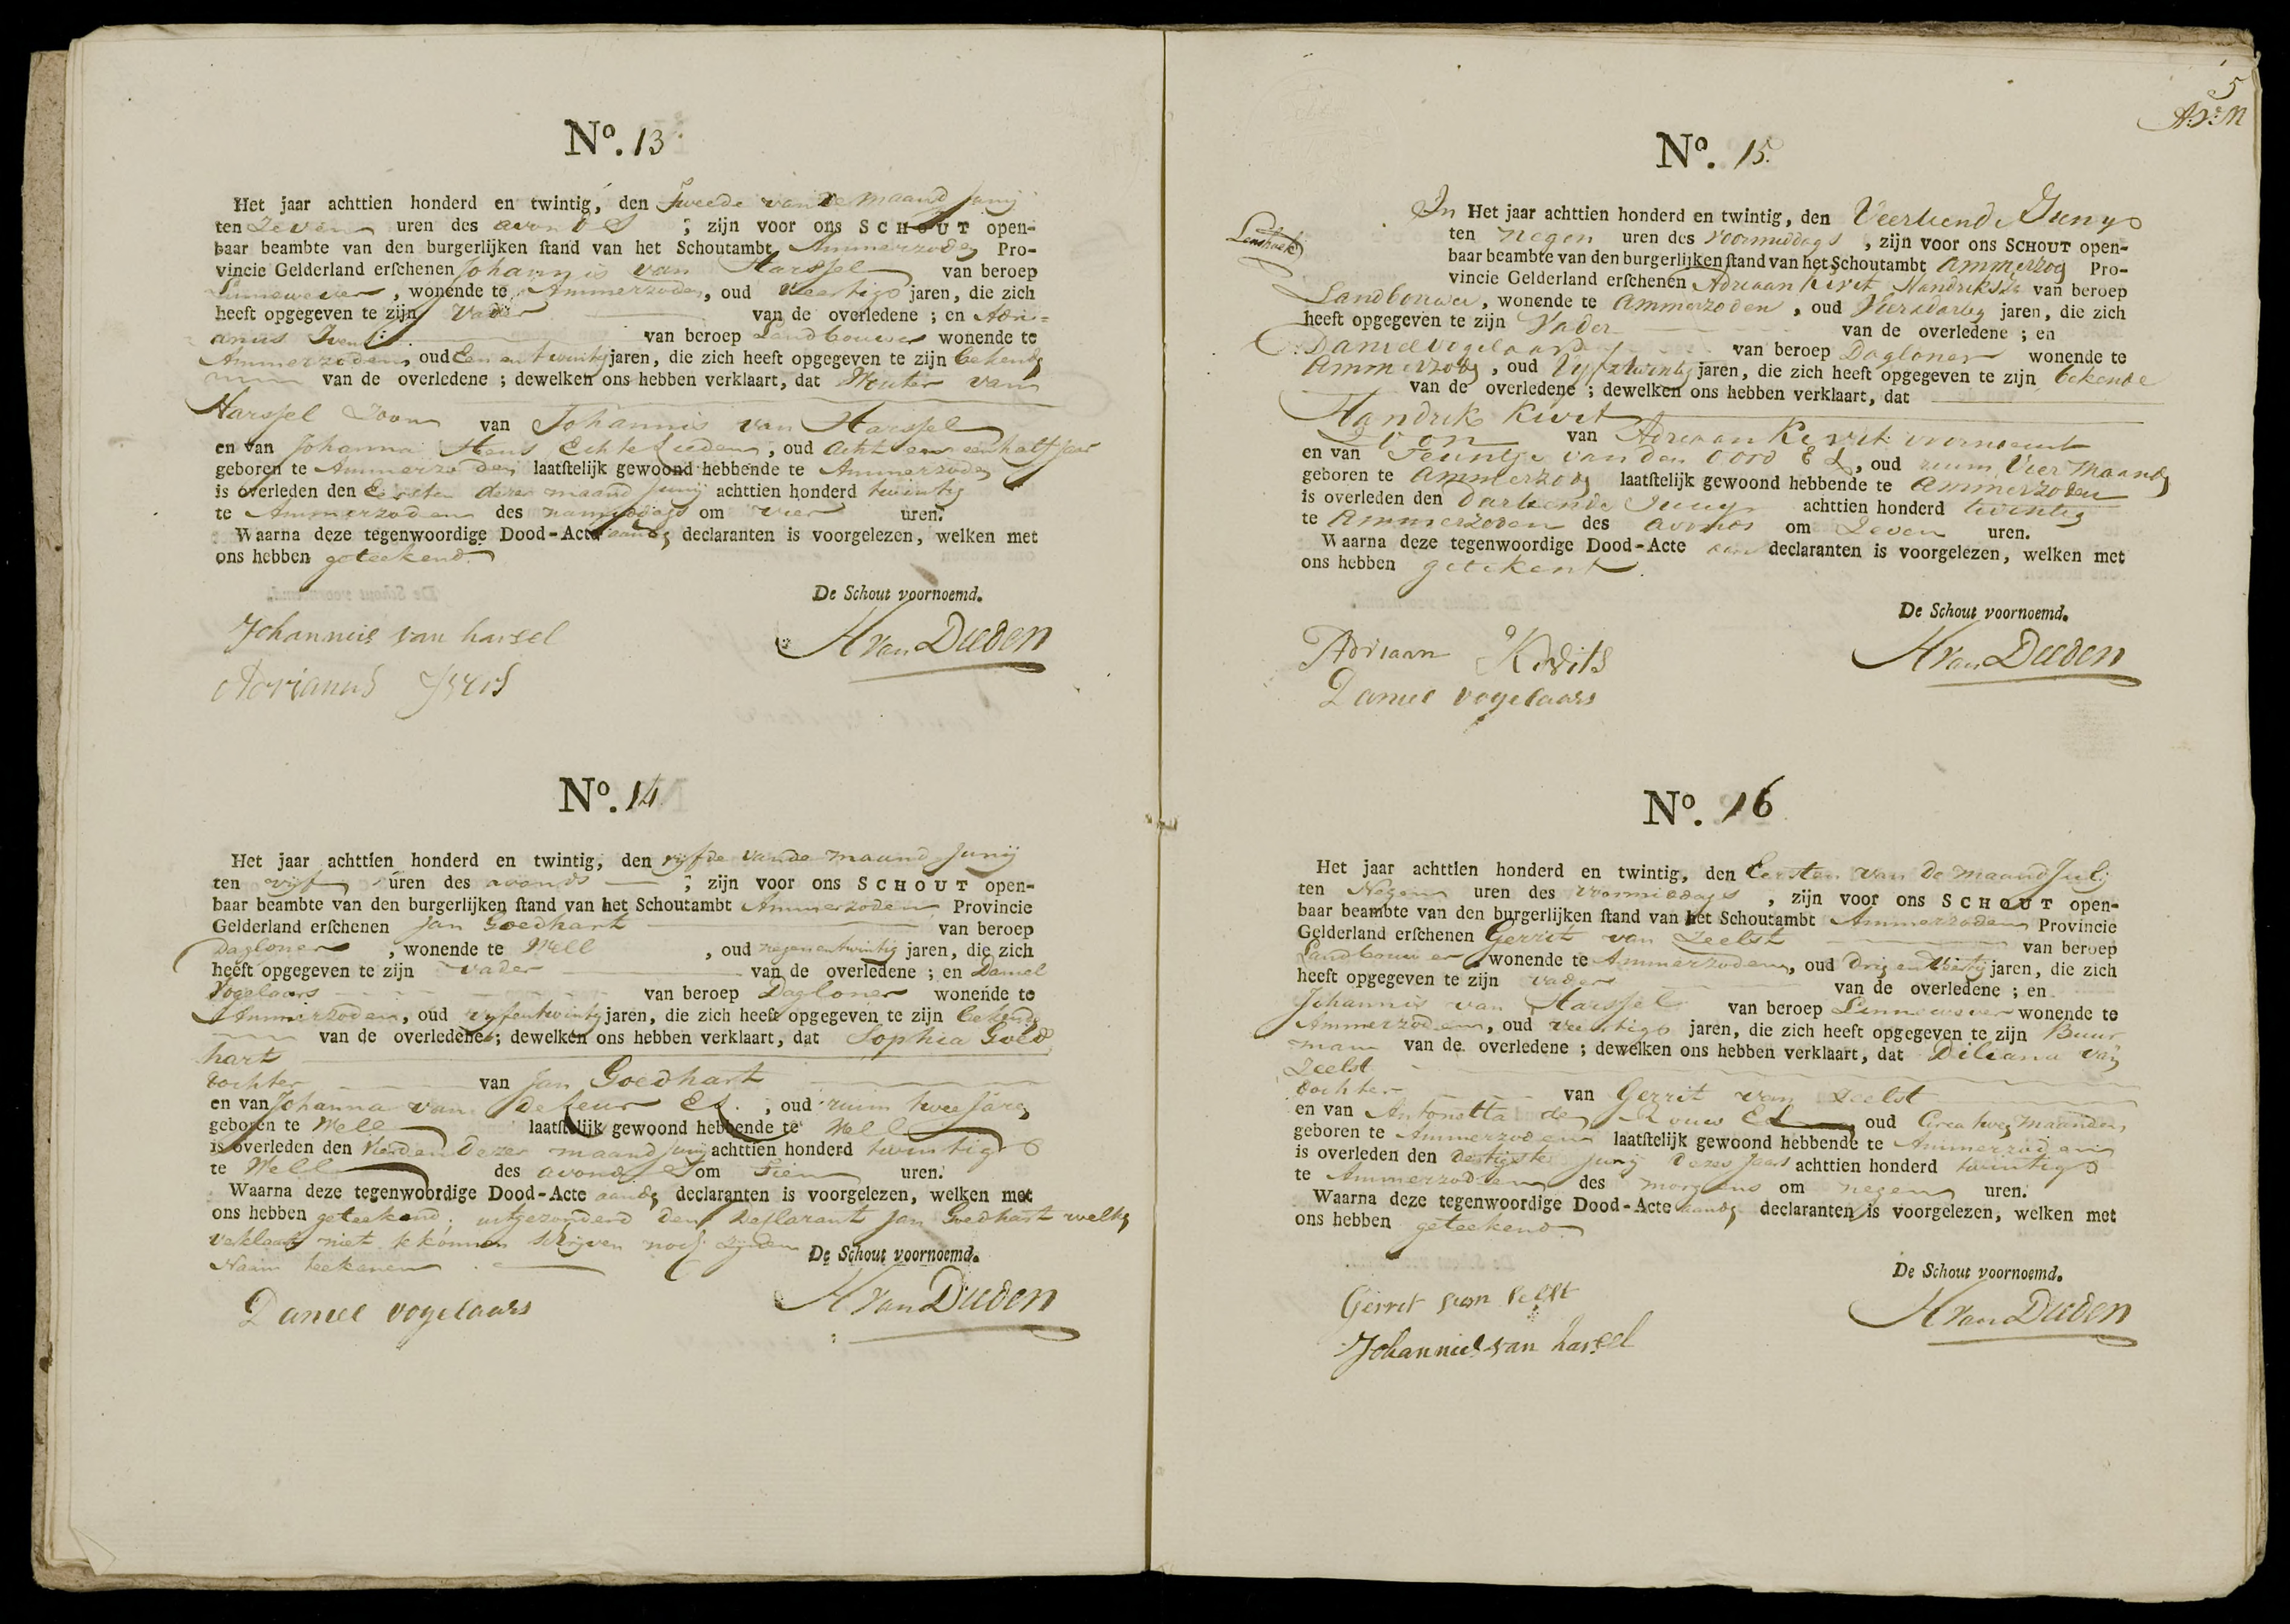 No. 13
Het jaar achttien honderd en twintig, den Tweede van de maand Junij
ten Zeven uren des avonds ; zijn voor ons SCHOUT open-
baar beambte van den burgerlijken ſtand van het Schoutambt Ammerzoden Pro-
vincie Gelderland erſchenen Johannis van Harssel van beroep
Linnewever, wonende te Ammerzoden, oud Veertigs jaren, die zich
heeft opgegeven te zijn Vader van de overledene ; en Adri-
anus van beroep Landbouwer wonende te
Ammerzoden, oud Een en twintig jaren, die zich heeft opgegeven te zijn bekende
van de overledene ; dewelken ons hebben verklaart, dat Wouter van
Harssel Zoon van Johannis van Harssel
en van Johanna Echte Lieden, oud acht en een half jaar
geboren te Ammerzoden laatſtelijk gewoond hebbende te Ammerzoden
is overleden den Eersten dezer maand Junij achttien honderd twintig
te Ammerzoden des namiddags om vier uren.
Waarna deze tegenwoordige Dood-Acte aande declaranten is voorgelezen, welken met
ons hebben geteekend.
De Schout voornoemd.
Johannies van harsel
HvanDieden
Adrianus
No. 14
Het jaar achttien honderd en twintig, den vyfde vande maand Junij
ten vijf uren des avonds ; zijn voor ons SCHOUT open-
baar beambte van den burgerlijken ſtand van het Schoutambt Ammerzoden Provincie
Gelderland erſchenen Jan Goedhart van beroep
Dagloner, wonende te Well, oud negenentwintig jaren, die zich
heeft opgegeven te zijn vader van de overledene ; en Daniel
Vogelaars van beroep Dagloner wonende te
Ammerzoden, oud vyfentwintig jaren, die zich heeft opgegeven te zijn bekende
van de overledene ; dewelken ons hebben verklaart, dat Sophia Goed
hart
dochter van Jan Goedhart
en van Johanna van de Leur EL. , oud ruim twee Jaren
geboren te Well laatſtelijk gewoond hebbende te Well
is overleden den Vierden Dezer maand Junij achttien honderd twintig
te Well des avonds om Tien uren.
Waarna deze tegenwoordige Dood-Acte aande declaranten is voorgelezen, welken met
ons hebben geteekend, uitgezonderd den Declarant Jan Goedhart welke
verklaart niet te konnen schrijven noch zynen
De Schout voornoemd.
Naam teekenen
Daniel vogelaars
HvanDieden
5
No. 15.
In Het jaar achttien honderd en twintig, den Veertiende Juny
ten negen uren des voormiddags, zijn voor ons SCHOUT open-
baar beambte van den burgerlijken ſtand van het Schoutambt Ammerzoden Pro-
vincie Gelderland erſchenen Adriaan Kivit Handriksz. van beroep
Landbouwer, wonende te Ammerzoden, oud Vierendartig jaren, die zich
heeft opgegeven te zijn Vader van de overledene ; en
Daniel Vogelaars van beroep Dagloner wonende te
Ammerzoden, oud Vyfentwintig jaren, die zich heeft opgegeven te zijn bekende
van de overledene ; dewelken ons hebben verklaart, dat
Handrik Kivit
Zoon van Adriaan Kivit voornoemt
en van Teuntje van den Oord EL, oud ruim Vier Maanden
geboren te Ammerzoden laatſtelijk gewoond hebbende te Ammerzoden
is overleden den dartiende Juny achttien honderd twintig
te Ammerzoden des avonds om Zeven uren.
Waarna deze tegenwoordige Dood-Acte aan declaranten is voorgelezen, welken met
ons hebben getekent.
De Schout voornoemd.
Adriaan Kivits
HvanDieden
Daniel vogelaars
No. 16
Het jaar achttien honderd en twintig, den Eersten van de maand Julij
ten Negen uren des Voormiddags, zijn voor ons SCHOUT open-
baar beambte van den burgerlijken ſtand van het Schoutambt Ammerzoden Provincie
Gelderland erſchenen Gerrit van Zeelst van beroep
Landbouwer, wonende te Ammerzoden, oud drie en dertig jaren, die zich
heeft opgegeven te zijn vader van de overledene ; en
Johannis van Harssel van beroep Linnewever wonende te
Ammerzoden, oud veertigs jaren, die zich heeft opgegeven te zijn Buur
man van de overledene ; dewelken ons hebben verklaart, dat Deliana van
Zeelst
dochter van Gerrit van Zeelst
en van Antonetta de Rouw EL oud Circa twee maanden
geboren te Ammerzoden laatſtelijk gewoond hebbende te Ammerzoden
is overleden den dertigste Junij dezes Jaars achttien honderd twintig
te Ammerzoden des morgens om negen uren.
Waarna deze tegenwoordige Dood-Acte aande declaranten is voorgelezen, welken met
ons hebben geteekend.
De Schout voornoemd.
Gerret van Selst
HvanDieden
Johannies van harsel